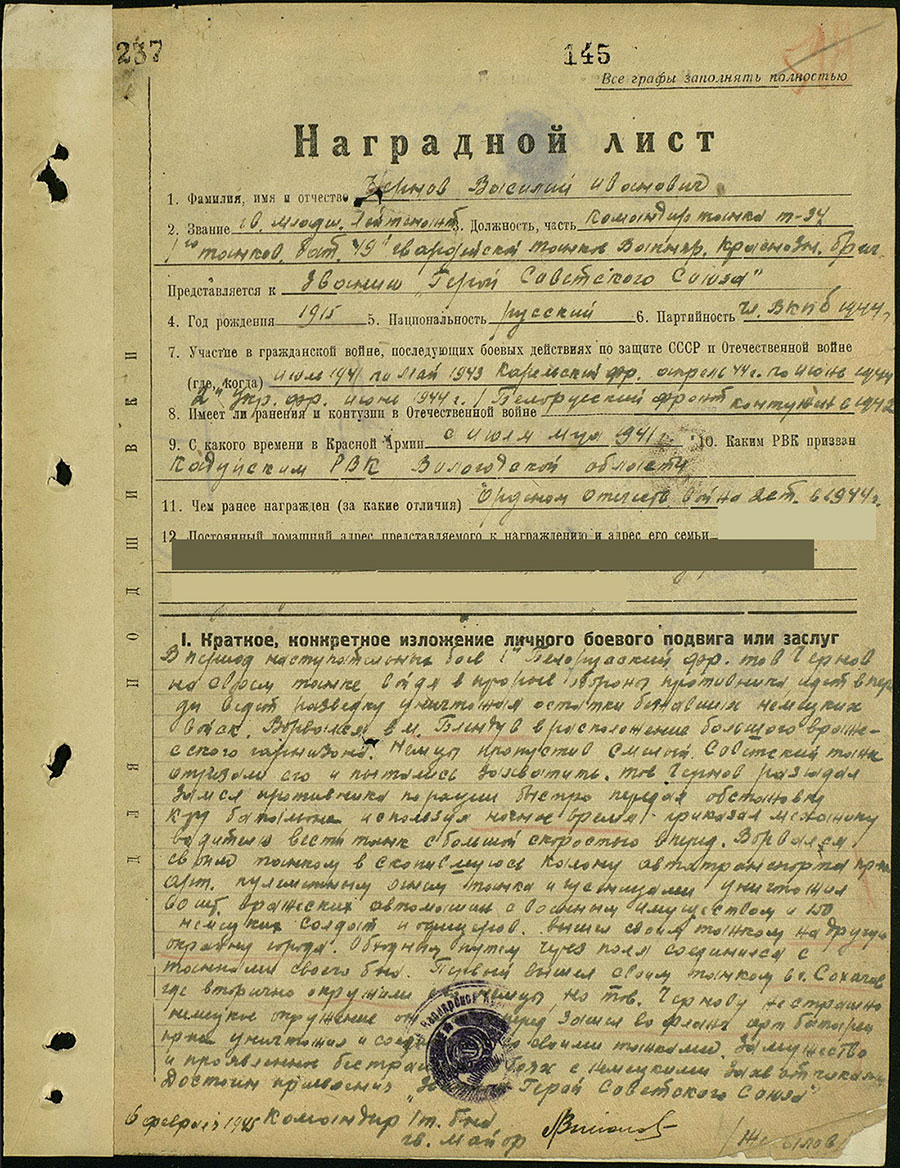 237
145
Все графы заполнять полностью
Наградной лист
1. Фамилия, имя и отчество Чернов Василий Иванович
2. Звание гв. младш. лейтенант 3. Должность, часть командир танка Т-34
1го танков. бат. "19" гвардейской танков Краснозн. бриг.
Представляется к званию "Герой Советского Союза"
4. Год рождения 1915 5. Национальность русский 6. Партийность чл. ВКПб 1944г.
7. Участие в гражданской войне, последующих боевых действиях по защите СССР и Отечественной войне
(где, когда) июль 1941 по май 1943 Карельский фр. апрель 44 г. по июнь 1944
2" Укр. фр. июнь 1944 г. 1 Белорусский фронт
8. Имеет ли ранения и контузии в Отечественной войне контужен в 1942
9. С какого времени в Красной Армии с июля м-ца 1941 г. 10. Каким РВК призван
Кадуйским РВК Вологодской области
11. Чем ранее награжден (за какие отличия) "Орденом Отечеств. война 2 ст. в 1944 г.
12. Постоянный домашний адрес представляемого к награждению и адрес его семьи
ДЛЯ ПОДШИВКИ
I. Краткое, конкретное изложение личного боевого подвига или заслуг
В период наступательных боев 1" Белорусский фр. тов Чернов
на своем танке войдя в прорыв обороны противника идет впере-
ди ведет разведку уничтожая остатки бежавших немецких
войск. Ворвался в м. в расположение большого враже-
ского гарнизона. Немцы пропустив смелый Советский танк
отрезали его и пытались захватить. тов Чернов разгадал
замысл противника по рации быстро передал обстановку
к-ру батальона используя ночное время приказал механику
водителю вести танк с большой скоростью вперед. Ворвался
своим танком в скопившуюся колону автотранспорта пр-ка
арт. пулеметным огнем танка и гусеницами уничтожил
80 шт. вражеских автомашин с военным имуществом и 150
немецких солдат и офицеров. вышел своим танком на другую
окраину города. Обходным путем через поля соединился с
танками своего б-на. Первый вышел своим танком в г. Сохачев
где вторично окружили его немцы, но тов. Чернову не страшно
немецкое окружение зашел во фланг арт батареи
пр-ка уничтожил и со своими танками. За мужество
и проявленные в боях с немецкими захватчиками
Достоин присвоения "Герой Советского Союза"
6 февраля 1945 Командир 1 т. б-на
гв. майор